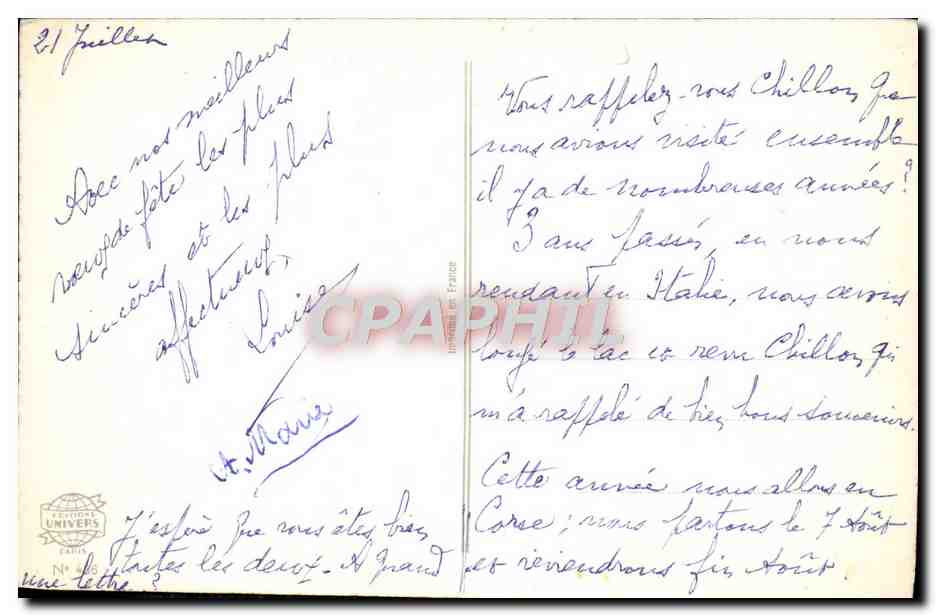 21 Juillet
Avec nos meilleurs
voeux de fête les plus
sincères et les plus
affectueux,
Louise
A. Maria
J'espère que vous êtes bien
toutes les deux. A quand
une lettre ?
Vous rappelez-vous Chillon que
nous avions visité ensemble
il y a de nombreuses années ?
3 ans passés, en nous
rendant en Italie, nous avions
longé le lac et revu Chillon qui
m'a rappelé de bien bons souvenirs.
Cette année nous allons en
Corse ; nous partons le 7 Août
et reviendrons fin Août.
Imprimé en France
EDITIONS
UNIVERS
PARIS
CPAPHIL